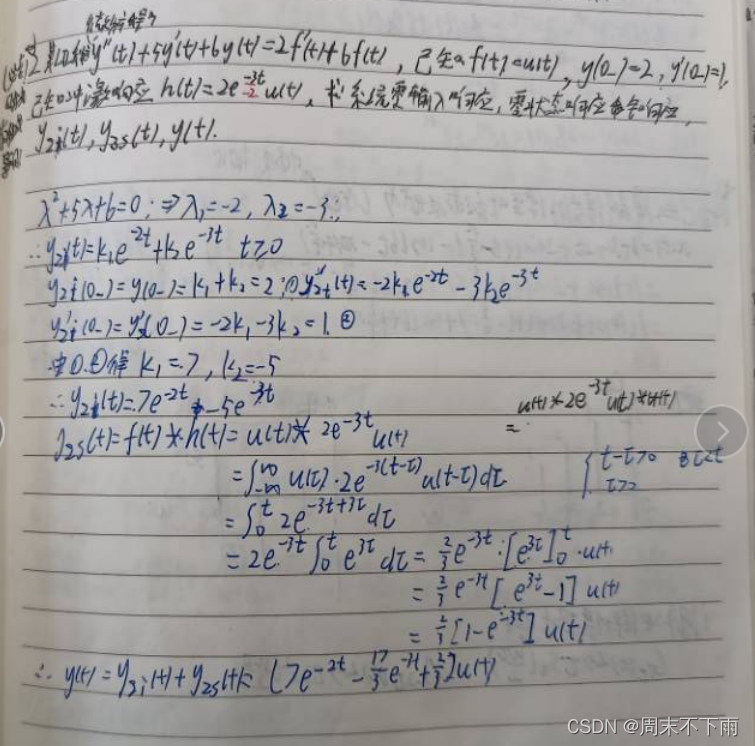 2. 某LTI系统 y''(t)+5y'(t)+6y(t)=2f'(t)+6f(t), 已知 f(t)=u(t), y(0_-)=2, y'(0_-)=1,
已知冲激响应 h(t)=2e^{-3t}u(t), 求系统零输入响应, 零状态响应 全响应
y_{zi}(t), y_{zs}(t), y(t).
λ²+5λ+6=0; ⇒λ₁=-2, λ₂=-3;
∴y_{zi}(t)=k₁e^{-2t}+k₂e^{-3t} t≥0
y_{zi}(0_-)=y(0_-)=k₁+k₂=2;① y'_{zi}(t)=-2k₁e^{-2t}-3k₂e^{-3t}
y'_{zi}(0_-)=y'(0_-)=-2k₁-3k₂=1.②
由①.②得 k₁=7, k₂=-5
∴y_{zi}(t)=7e^{-2t}-5e^{-3t}
y_{zs}(t)=f(t)*h(t)=u(t)*2e^{-3t}u(t)
=∫_{-∞}^{∞}u(τ)·2e^{-3(t-τ)}u(t-τ)dτ
{t-τ>0
=∫_0^t 2e^{-3t+3τ}dτ
=2e^{-3t}∫_0^t e^{3τ}dτ=⅔e^{-3t}·[e^{3τ}]_0^t·u(t)
=⅔e^{-3t}[e^{3t}-1]u(t)
=⅔[1-e^{-3t}]u(t)
∴y(t)=y_{zi}(t)+y_{zs}(t)=[7e^{-2t}-17/3e^{-3t}+⅔]u(t)
CSDN @周末不下雨